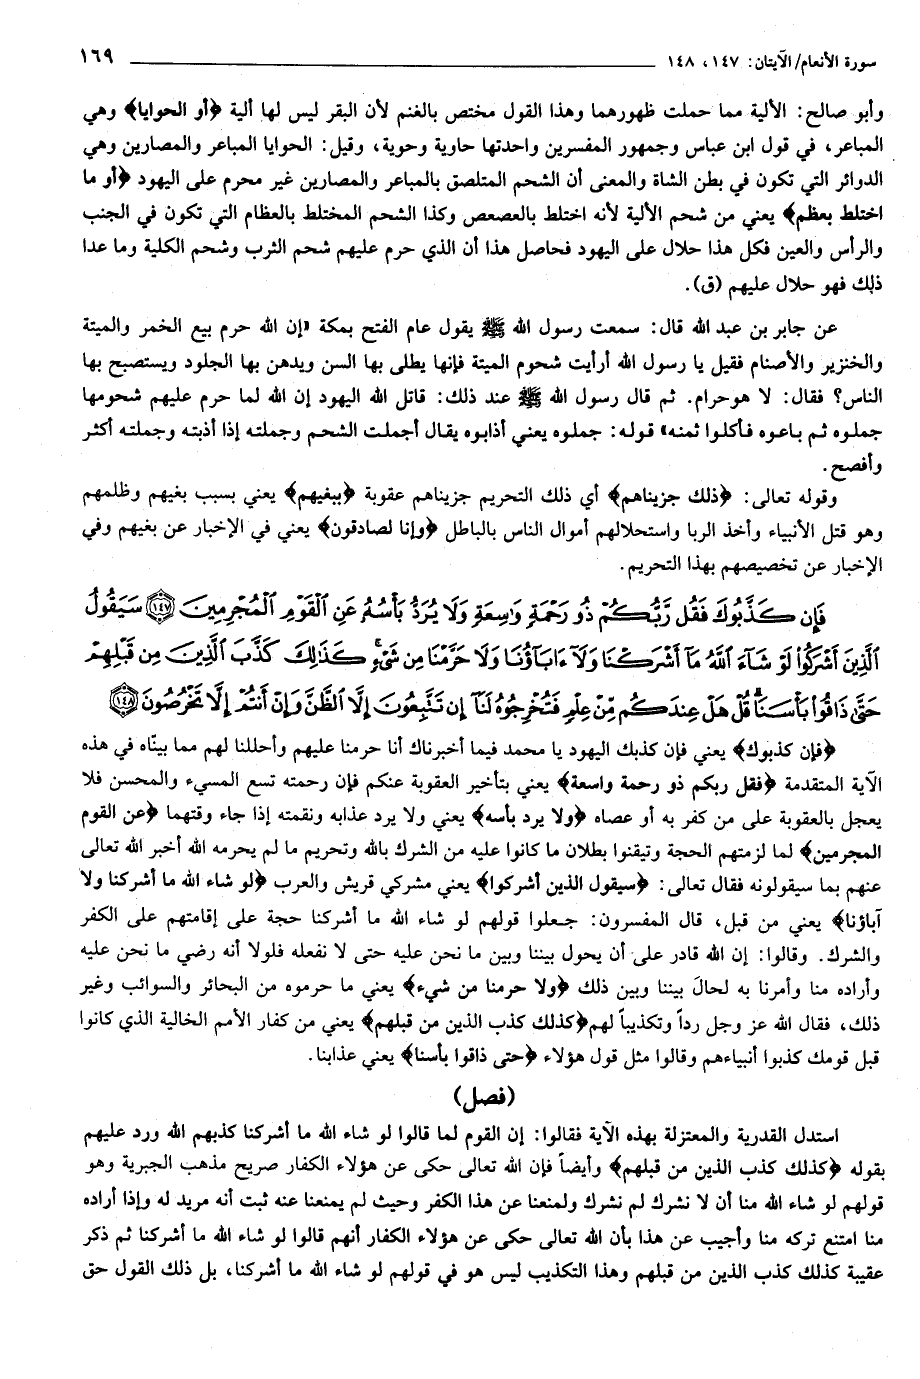 سورة الأنعام/الآيتان: ١٤٧، ١٤٨ ١٦٩
وأبو صالح: الألية مما حملت ظهورهما وهذا القول مختص بالغنم لأن البقر ليس لها ألية ﴿أو الحوايا﴾ وهي
المباعر، في قول ابن عباس وجمهور المفسرين واحدتها حاوية وحوية، وقيل: الحوايا المباعر والمصارين وهي
الدوائر التي تكون في بطن الشاة والمعنى أن الشحم المتلصق بالمباعر والمصارين غير محرم على اليهود ﴿أو ما
اختلط بعظم﴾ يعني من شحم الألية لأنه اختلط بالعصعص وكذا الشحم المختلط بالعظام التي تكون في الجنب
والرأس والعين فكل هذا حلال على اليهود فحاصل هذا أن الذي حرم عليهم شحم الثرب وشحم الكلية وما عدا
ذلك فهو حلال عليهم (ق).
عن جابر بن عبد الله قال: سمعت رسول الله ﷺ يقول عام الفتح بمكة «إن الله حرم بيع الخمر والميتة
والخنزير والأصنام فقيل يا رسول الله أرأيت شحوم الميتة فإنها يطلى بها السن ويدهن بها الجلود ويستصبح بها
الناس؟ فقال: لا هوحرام. ثم قال رسول الله ﷺ عند ذلك: قاتل الله اليهود إن الله لما حرم عليهم شحومها
جملوه ثم باعوه فأكلوا ثمنه» قوله: جملوه يعني أذابوه يقال أجملت الشحم وجملته إذا أذبته وجملته أكثر
وأفصح.
وقوله تعالى: ﴿ذلك جزيناهم﴾ أي ذلك التحريم جزيناهم عقوبة ﴿ببغيهم﴾ يعني بسبب بغيهم وظلمهم
وهو قتل الأنبياء وأخذ الربا واستحلالهم أموال الناس بالباطل ﴿وإنا لصادقون﴾ يعني في الإخبار عن بغيهم وفي
الإخبار عن تخصيصهم بهذا التحريم.
فَإِن كَذَّبُوكَ فَقُل رَّبُّكُمْ ذُو رَحْمَةٍ وَٰسِعَةٍ وَلَا يُرَدُّ بَأْسُهُۥ عَنِ ٱلْقَوْمِ ٱلْمُجْرِمِينَ ﴿١٤٧﴾ سَيَقُولُ
ٱلَّذِينَ أَشْرَكُوا۟ لَوْ شَآءَ ٱللَّهُ مَآ أَشْرَكْنَا وَلَآ ءَابَآؤُنَا وَلَا حَرَّمْنَا مِن شَىْءٍ ۚ كَذَٰلِكَ كَذَّبَ ٱلَّذِينَ مِن قَبْلِهِمْ
حَتَّىٰ ذَاقُوا۟ بَأْسَنَا ۗ قُلْ هَلْ عِندَكُم مِّنْ عِلْمٍ فَتُخْرِجُوهُ لَنَآ ۖ إِن تَتَّبِعُونَ إِلَّا ٱلظَّنَّ وَإِنْ أَنتُمْ إِلَّا تَخْرُصُونَ ﴿١٤٨﴾
﴿فإن كذبوك﴾ يعني فإن كذبك اليهود يا محمد فيما أخبرناك أنا حرمنا عليهم وأحللنا لهم مما بيناه في هذه
الآية المتقدمة ﴿فقل ربكم ذو رحمة واسعة﴾ يعني بتأخير العقوبة عنكم فإن رحمته تسع المسيء والمحسن فلا
يعجل بالعقوبة على من كفر به أو عصاه ﴿ولا يرد بأسه﴾ يعني ولا يرد عذابه ونقمته إذا جاء وقتهما ﴿عن القوم
المجرمين﴾ لما لزمتهم الحجة وتيقنوا بطلان ما كانوا عليه من الشرك بالله وتحريم ما لم يحرمه الله أخبر الله تعالى
عنهم بما سيقولونه فقال تعالى: ﴿سيقول الذين أشركوا﴾ يعني مشركي قريش والعرب ﴿لو شاء الله ما أشركنا ولا
آباؤنا﴾ يعني من قبل، قال المفسرون: جعلوا قولهم لو شاء الله ما أشركنا حجة على إقامتهم على الكفر
والشرك. وقالوا: إن الله قادر على أن يحول بيننا وبين ما نحن عليه حتى لا نفعله فلولا أنه رضي ما نحن عليه
وأراده منا وأمرنا به لحالَ بيننا وبين ذلك ﴿ولا حرمنا من شيء﴾ يعني ما حرموه من البحائر والسوائب وغير
ذلك، فقال الله عز وجل رداً وتكذيباً لهم﴿كذلك كذب الذين من قبلهم﴾ يعني من كفار الأمم الخالية الذي كانوا
قبل قومك كذبوا أنبياءهم وقالوا مثل قول هؤلاء ﴿حتى ذاقوا بأسنا﴾ يعني عذابنا.
(فصل)
استدل القدرية والمعتزلة بهذه الآية فقالوا: إن القوم لما قالوا لو شاء الله ما أشركنا كذبهم الله ورد عليهم
بقوله ﴿كذلك كذب الذين من قبلهم﴾ وأيضاً فإن الله تعالى حكى عن هؤلاء الكفار صريح مذهب الجبرية وهو
قولهم لو شاء الله منا أن لا نشرك لم نشرك ولمنعنا عن هذا الكفر وحيث لم يمنعنا عنه ثبت أنه مريد له وإذا أراده
منا امتنع تركه منا وأجيب عن هذا بأن الله تعالى حكى عن هؤلاء الكفار أنهم قالوا لو شاء الله ما أشركنا ثم ذكر
عقيبة كذلك كذب الذين من قبلهم وهذا التكذيب ليس هو في قولهم لو شاء الله ما أشركنا، بل ذلك القول حق